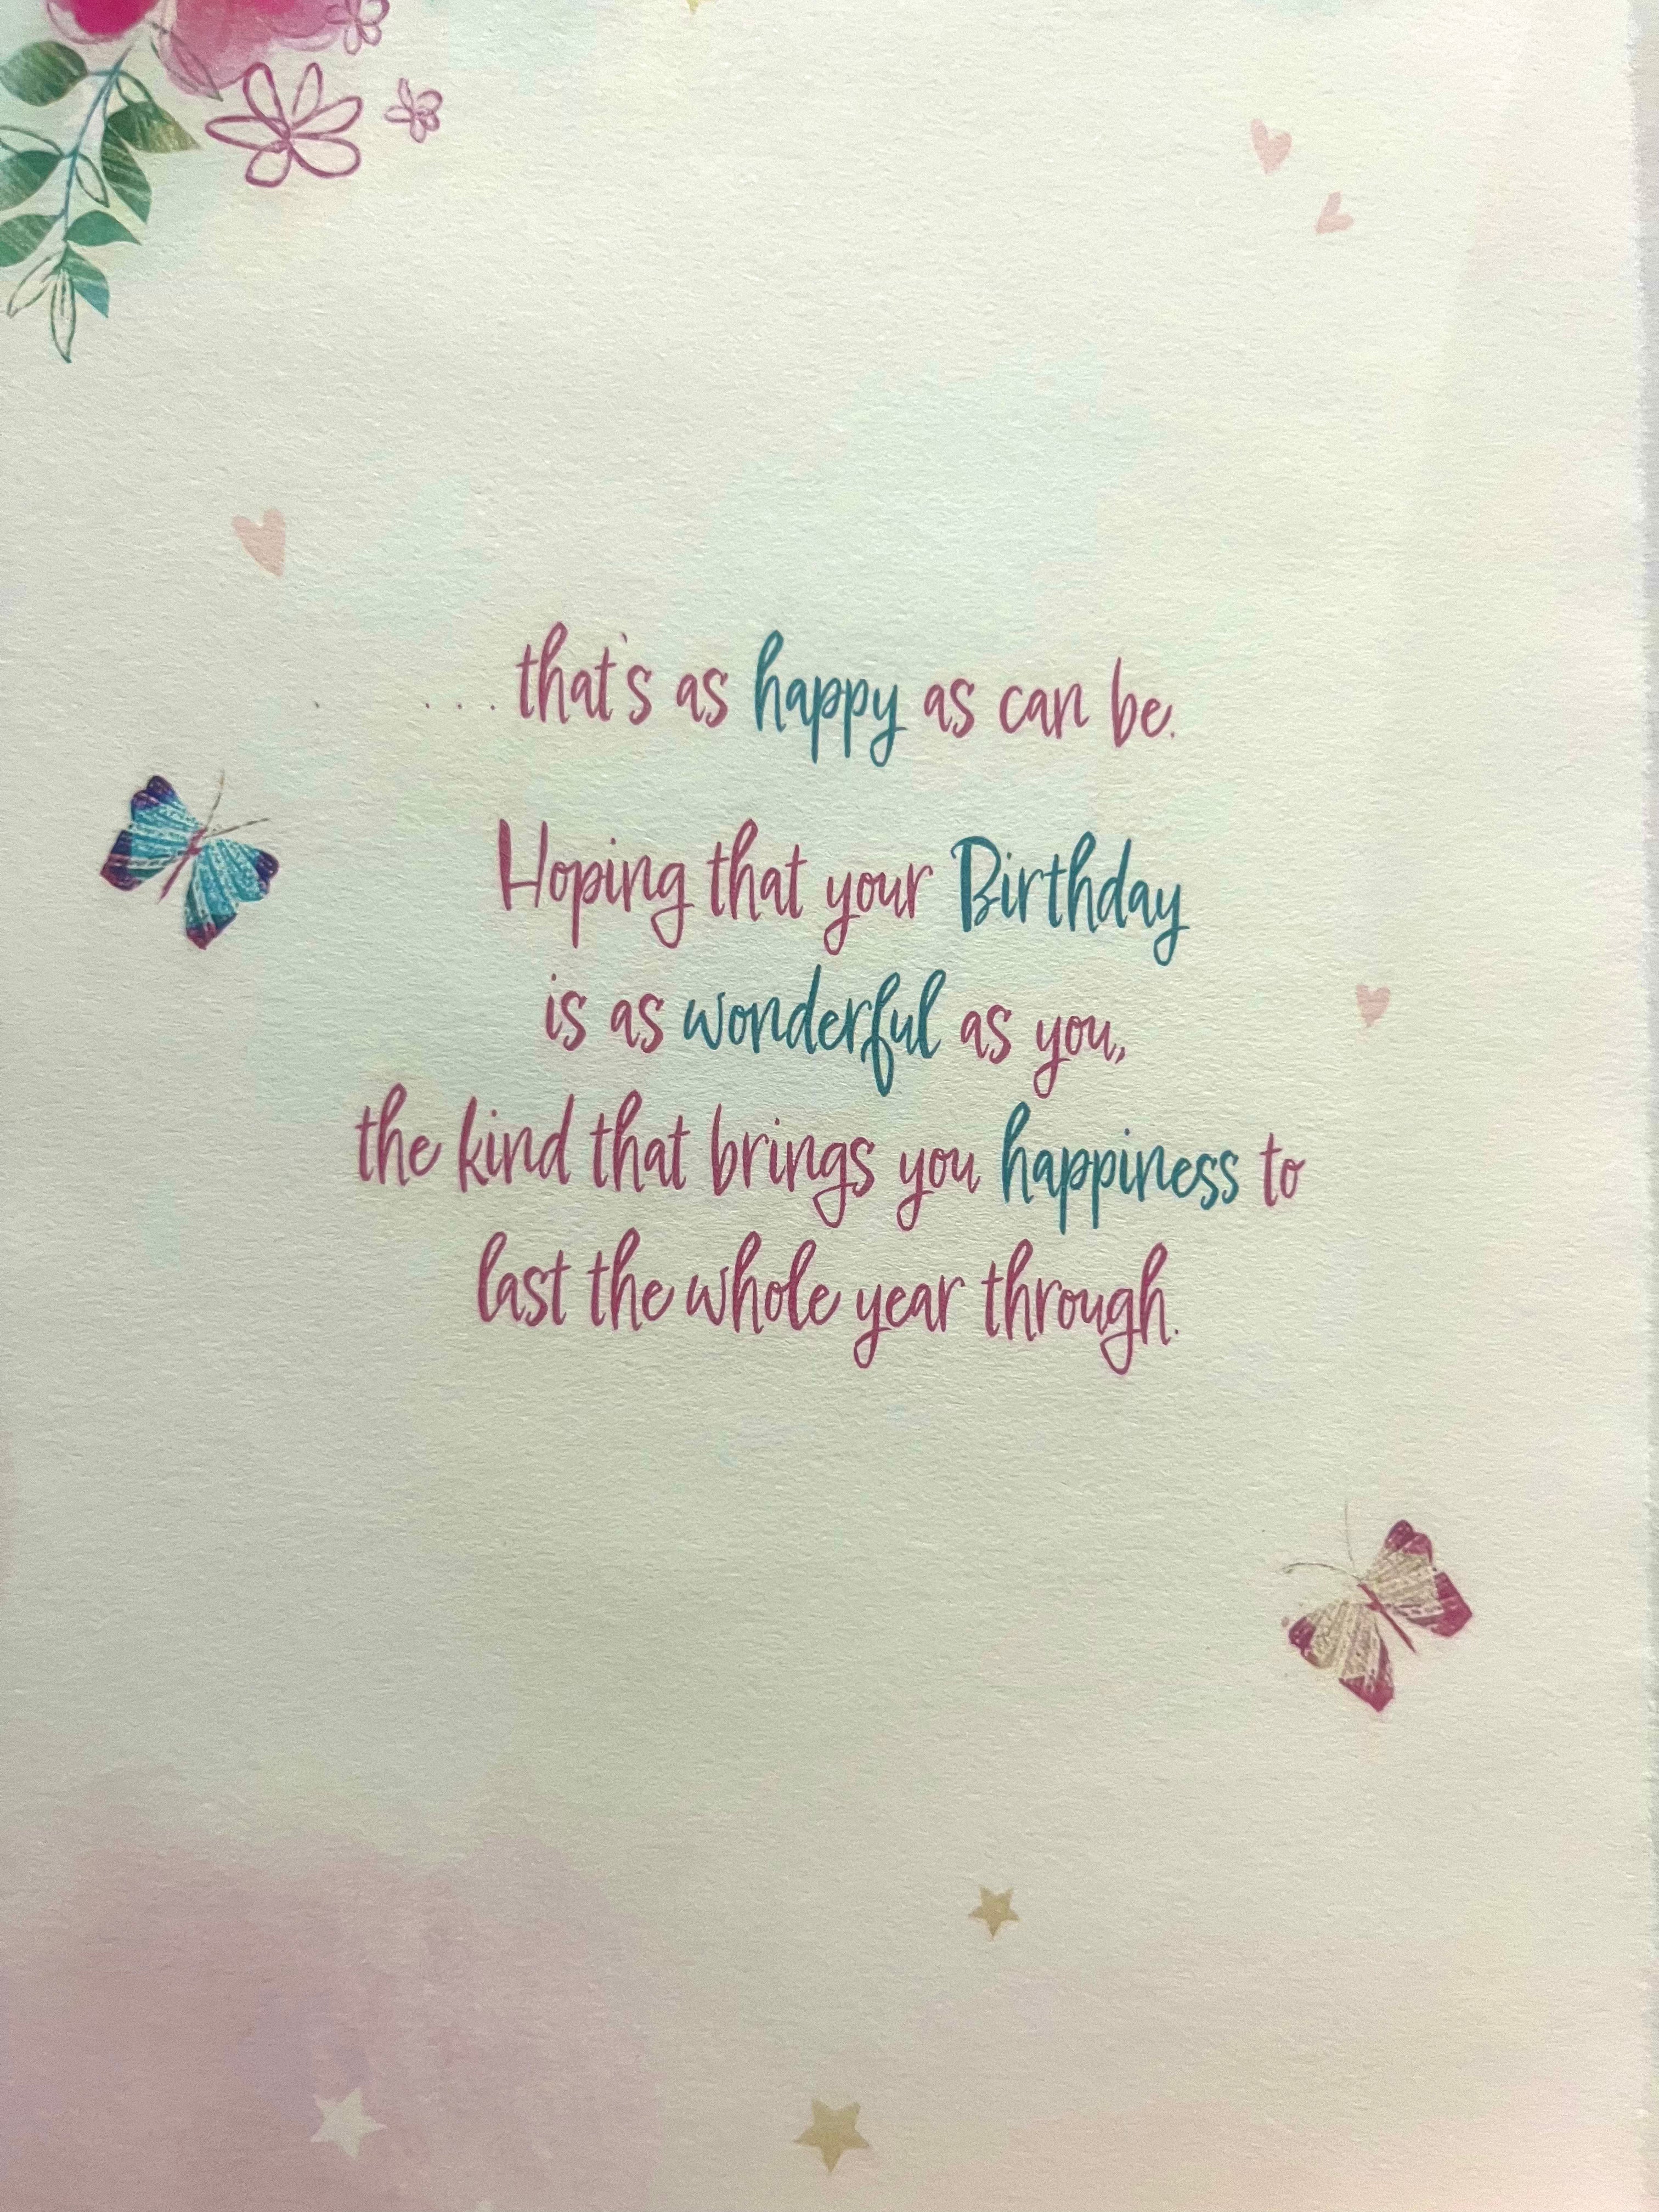 . ...that's as happy as can be.
Hoping that your Birthday
is as wonderful as you,
the kind that brings you happiness to
last the whole year through.